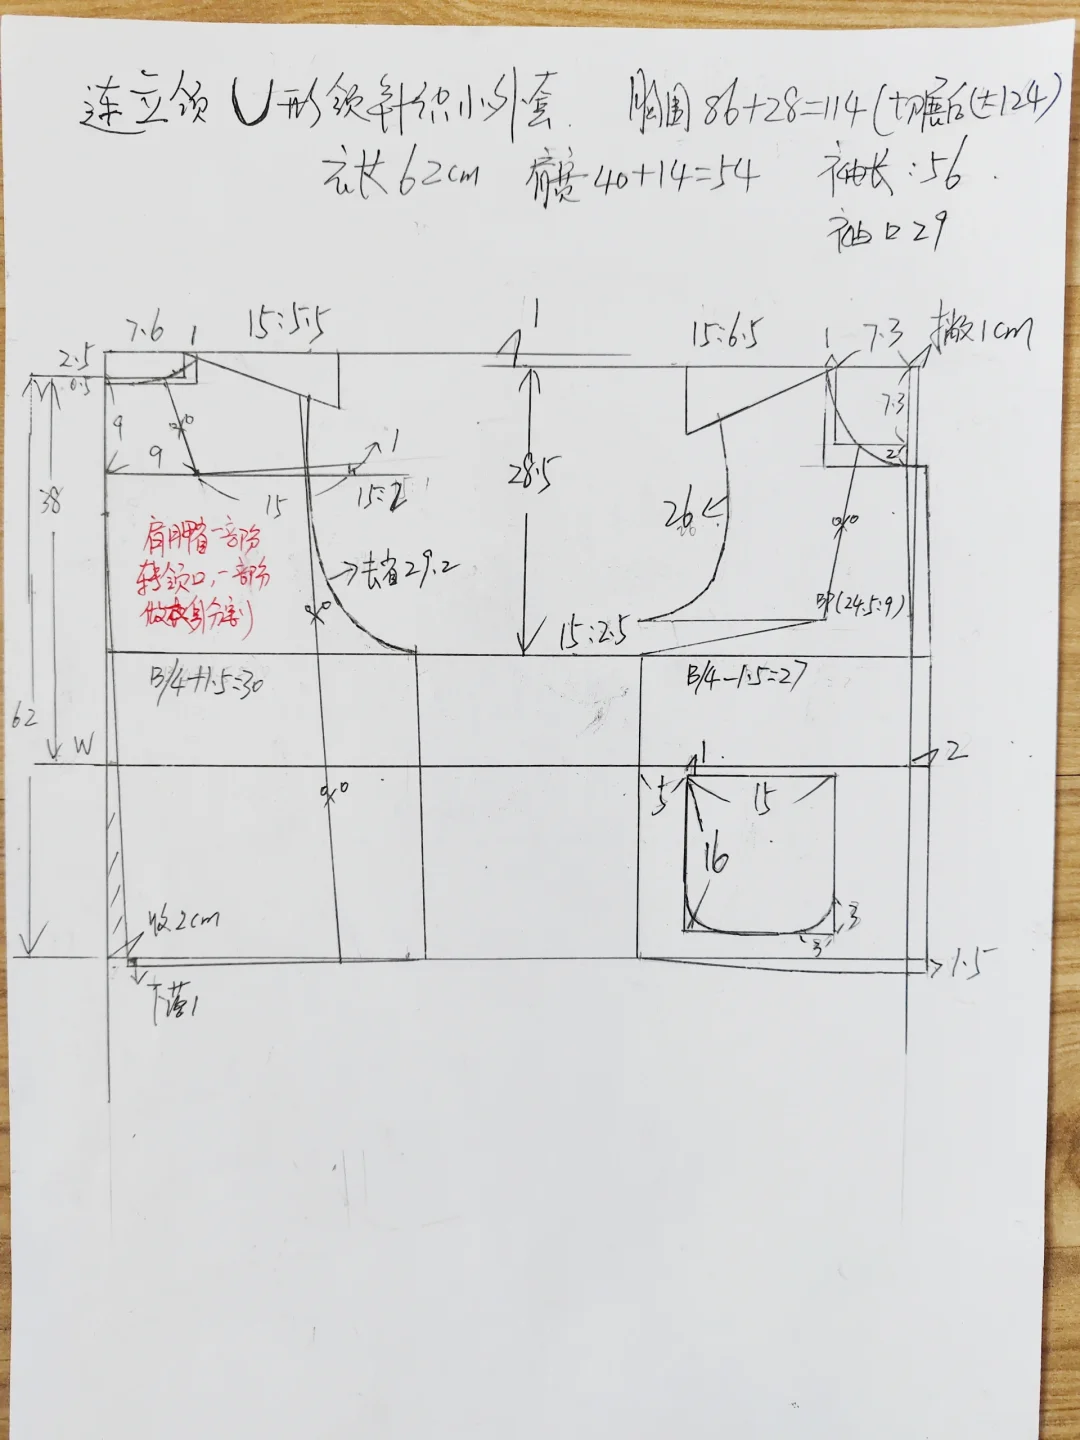 连立领U形领针织小外套 胸围86+28=114(切展后(±124)
衣长62cm 肩宽40+14=54 袖长:56
袖口29
7.6 1 15:5.5 1 15:6.5 1 7.3 撇1cm
2.5
0.5
7.3
9 % 1
9
28.5 2
38 15 15:2
26
%
肩胛省一部分
转领口,一部分
做 分割)
去省29.2
% BP(24.5:9)
15:2.5
B/4+1.5=30 B/4-1.5=27
62
W 1 2
% 5 15
16
收2cm 3
3
1.5
下落1